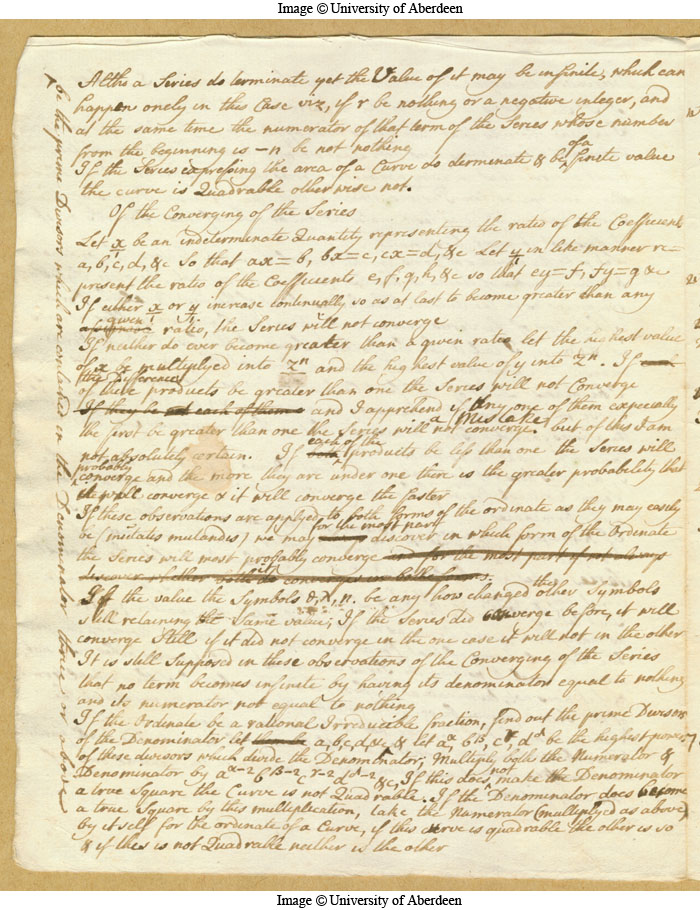 Image © University of Aberdeen
Altho a Series do terminate yet the Value of it may be infinite, which can
happen onely in this Case viz, if r be nothing or a negative integer, and
at the same time the numerator of that term of the Series whose number
from the beginning is -n be not nothing
If the Series expressing the area of a Curve do derminate & be of a finite value
the curve is Quadrable otherwise not.
Of the Converging of the Series
Let x/1 be an indeterminate Quantity representing the ratio of the Coefficients
a, b, c, d, &c So that ax = b, bx = c, cx = d, &c Let y/1 in like manner re=
present the ratio of the Coefficients e, f, g, h, &c so that ey = f, fy = g &c
If either x/1 or y/1 increase continually, so as at last to become greater than any
given ratio, the Series will not converge
If neither do ever become greater than a given ratio let the highest value
of x be multiplyed into zⁿ and the highest value of y into zⁿ. If
the difference
of these products be greater than one the Series will not Converge
If they be not each of them and I apprehend if any one of them especially
a Mistake
the first be greater than one the Series will not converge. but of this I am
not absolutely certain. If each of the products be less than one the Series will
probably
converge and the more they are under one there is the greater probability that
it will converge & it will converge the faster
If these observations are applyed to both forms of the ordinate as they may easily
for the most part
be (mutatis mutandis) we may discover in which form of the Ordinate
the Series will most probably converge or for the most part if not always
discover whether both do converge or both
If the value the Symbols θ, λ, n. be any how changed the other Symbols
still retaining the same value; If the Series did converge before, it will
converge Still if it did not converge in the one case it will not in the other
It is still Supposed in these observations of the Converging of the Series
that no term becomes infinite by having its denominator equal to nothing
and its numerator not equal to nothing
If the Ordinate be a rational Irreducible fraction, find out the prime Divisors
of the Denominator let a, b, c, d &c, & let aᵅ, bᵝ, cᵞ, dᵟ be the highest powers
of these divisors which divide the Denominator; Multiply both the Numerator &
Denominator by aᵅ⁻² bᵝ⁻² cᵞ⁻² dᵟ⁻² &c, If this does not make the Denominator
a true square the Curve is not Quadrable. If the Denominator does become
a true Square by this multiplication, take the Numerator (multiplyed as above)
by it self for the ordinate of a Curve, if this curve is quadrable the other is so
& if this is not Quadrable neither is the other
be the prime Divisors which are contained in the Denominator thrice or above
Image © University of Aberdeen